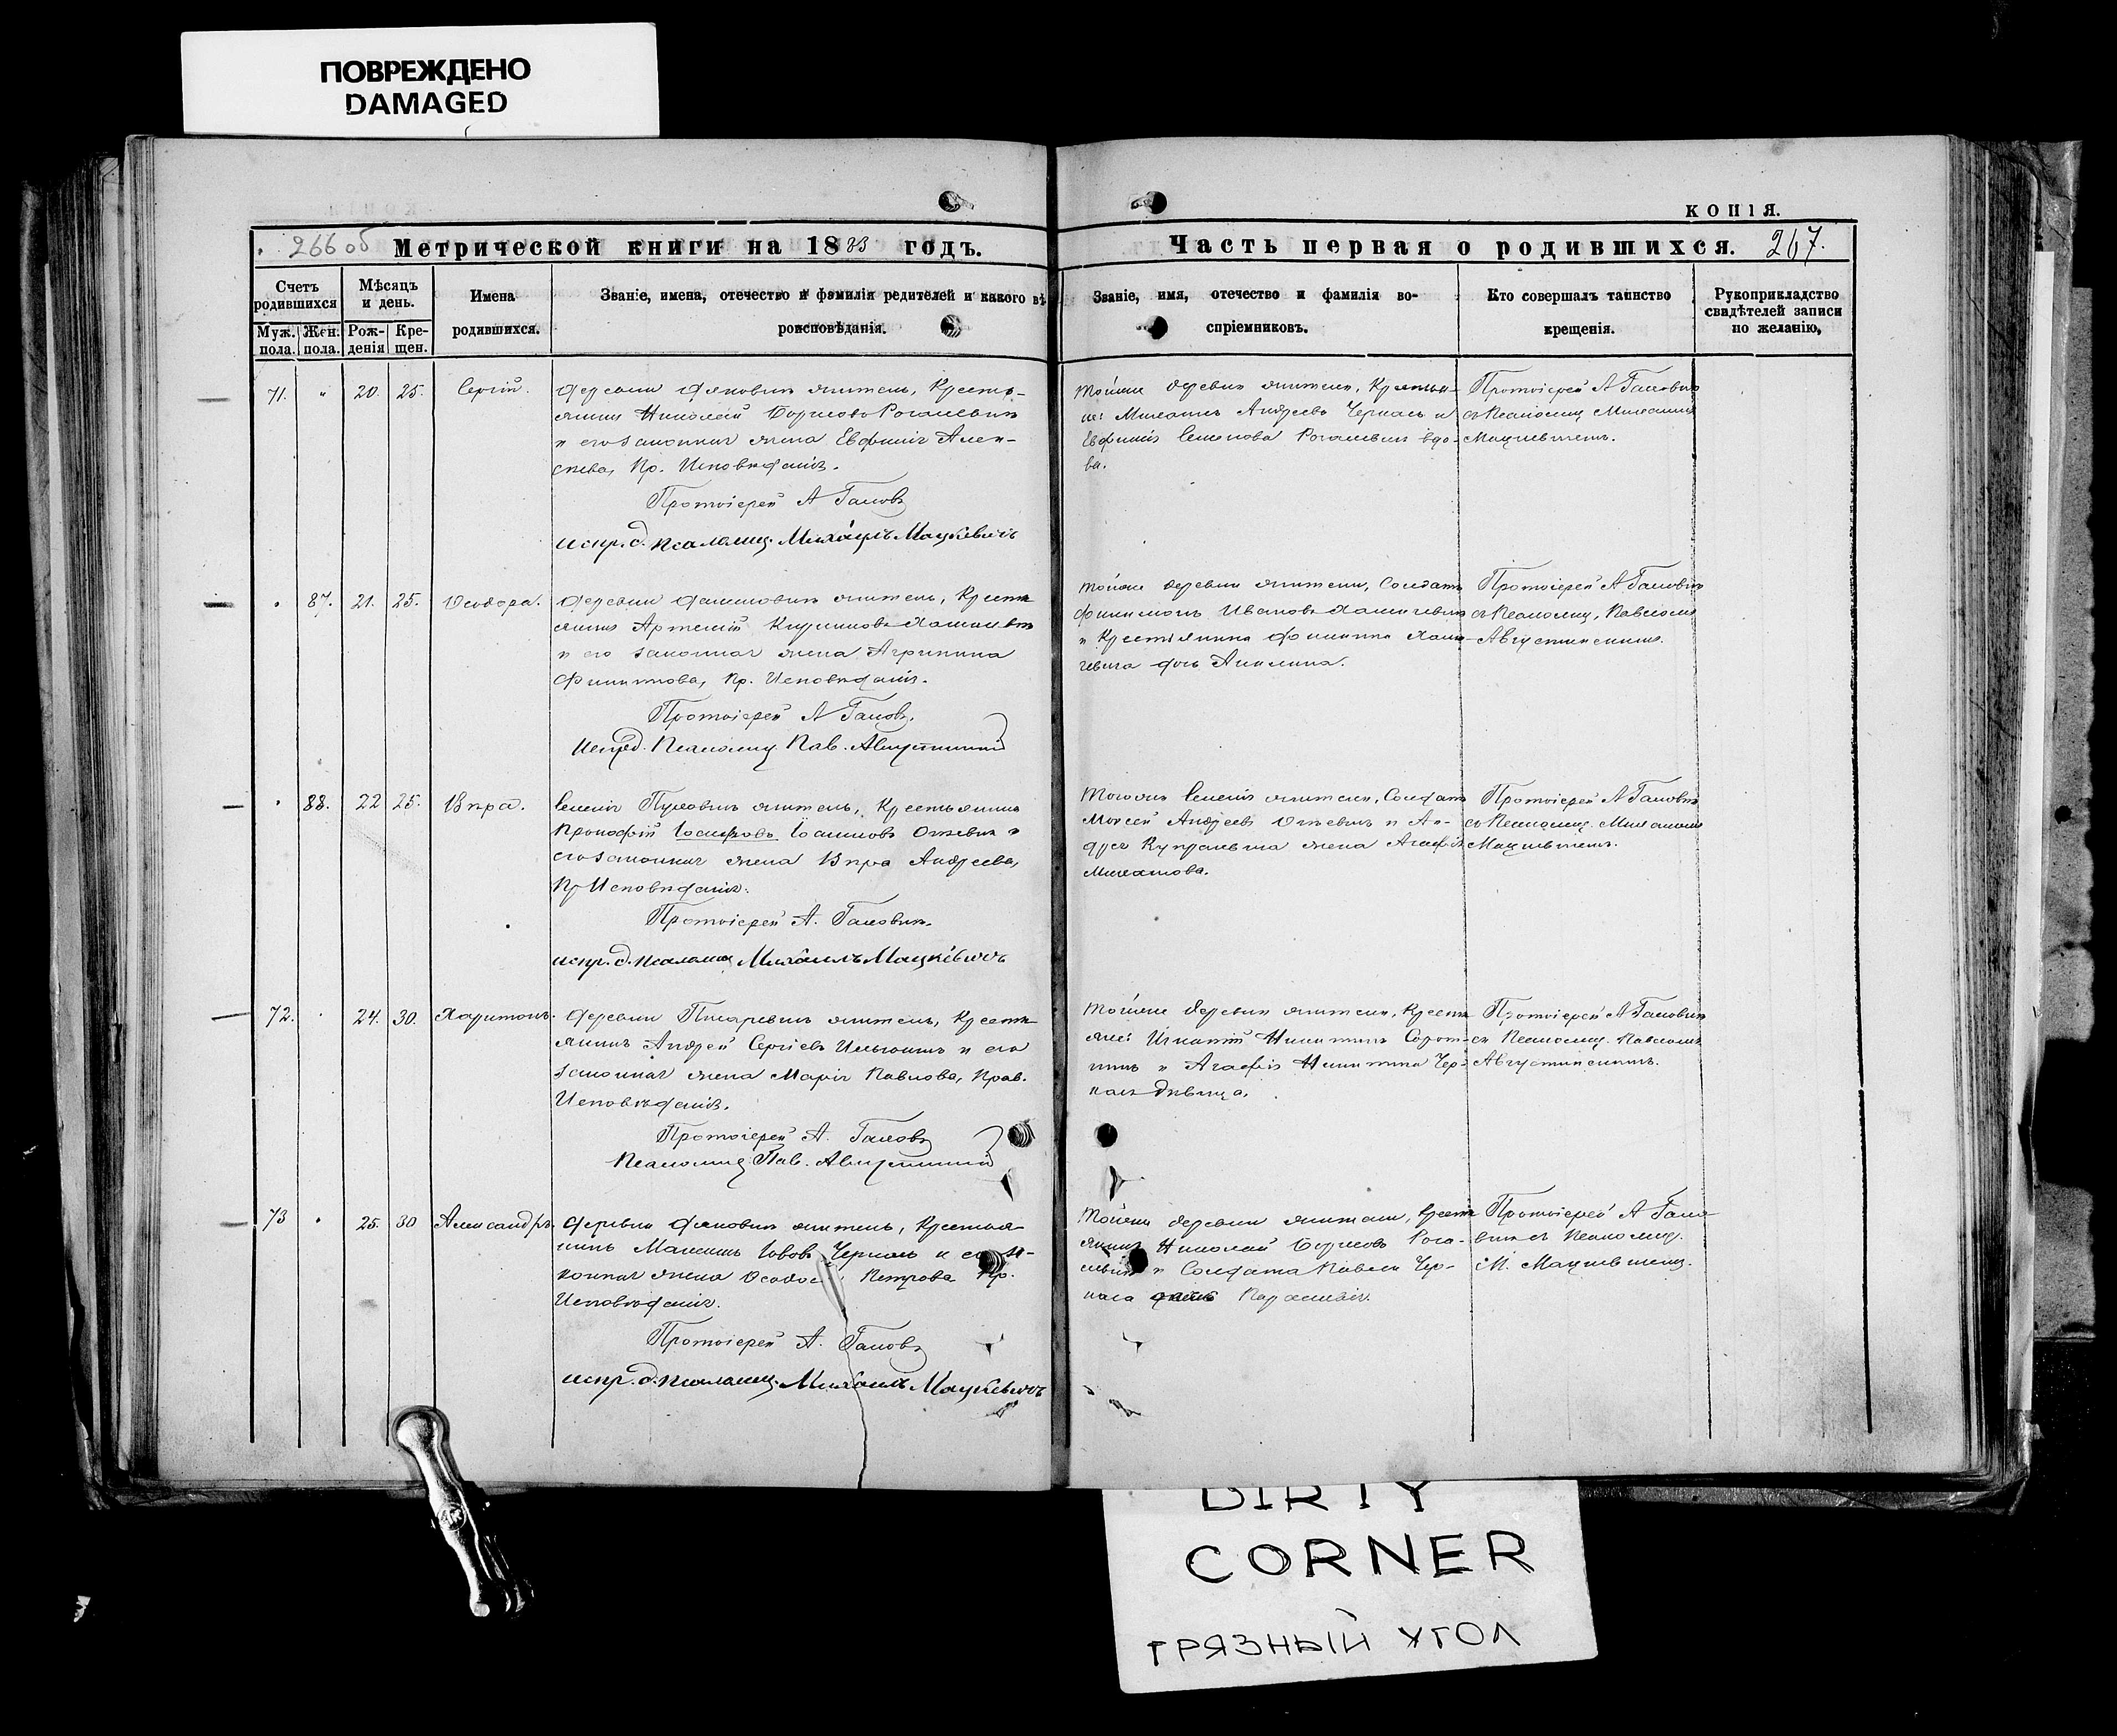 ПОВРЕЖДЕНО
DAMAGED
КОПІЯ.
266 об
Метрической книги на 1883 годъ.
Часть первая о родившихся.
267.
Счетъ родившихся
Муж. пола.
Жен. пола.
Мѣсяцъ и день.
Рож-
денія
Кре-
щен.
Имена
родившихся.
Званіе, имена, отечество и фамилія родителей и какого вѣ
роисповѣданія.
Званіе, имя, отечество и фамилія во-
спріемниковъ.
Кто совершалъ таинство
крещенія.
Рукоприкладство
свидѣтелей записи
по желанію,
71. " 20. 25. Сергій.
Деревни житель, Кресть-
янинъ Николай Борисовъ Рогалевичъ
и его законная жена Евфимія Алек-
сѣева, Пр. Исповѣданія.
Протоіерей А Галовъ
испр. д. псаломщ. Михаилъ Мацкевичъ
Тойже деревни жители, Крестья-
не: Михаилъ Андреевъ Черналь и
Евфимія Семенова Рогалевичъ вдо-
ва.
Протоіерей А Галовичъ
съ Псаломщ Михаиломъ
Мацкевичемъ.
87. 21. 25. Ѳеодора.
Деревни житель, Кресть
янинъ Артемій
и его законная жена Агрипина
Филиппова, Пр. Исповѣданія.
Протоіерей А Галовъ.
Испр д. Псаломщ Пав. Августинскій
Тойже деревни жители, Солдатъ
Филимонъ Ивановъ
и Крестьянина Филиппа
дочь Акилина.
Протоіерей А Галовичъ
съ Псаломщ. Павломъ
Августинскимъ.
88. 22 25. Вѣра.
Селенія житель, Крестьянинъ
Прокофій Іосифовъ Іоакимовъ и
его законная жена Вѣра Андреева,
Пр Исповѣданія.
Протоіерей А. Галовичъ.
испр. д. псаломщ Михаилъ Мацкевичъ
Тогожъ Селенія жители, Солдатъ
Моисей Андреевъ и Ан-
дрея жена Агафія
Михайлова.
Протоіерей А Галовичъ
съ Псаломщ. Михаиломъ
Мацкевичемъ.
72. 24. 30. Харитонъ.
Деревни Писаревичъ житель, Кресть
янинъ Андрей Сергіевъ и его
законная жена Марія Павлова, Прав.
Исповѣданія.
Протоіерей А. Галовъ
Псаломщ Пав. Августинскій
Тойже деревни жители, Кресть
яне: Игнатій Никитинъ
и Агафія Никитина Чер-
наль дѣвица.
Протоіерей А Галовичъ
съ Псаломщ. Павломъ
Августинскимъ.
73 25. 30 Александръ.
Деревни житель, Крестья-
нинъ Максимъ Іововъ Черналь и его за-
конная жена Ѳеодос Петрова Пр.
Исповѣданія.
Протоіерей А. Галовъ
испр. д. псаломщ. Михаилъ Мацкевичъ
Тойже деревни жители, Кресть
янинъ Николай Борисовъ Рога-
левичъ и Солдата Павла Чер-
нала Параскевія.
Протоіерей А Гало-
вичъ съ Псаломщ.
М. Мацкевичемъ.
DIRTY
CORNER
ГРЯЗНЫЙ УГОЛ